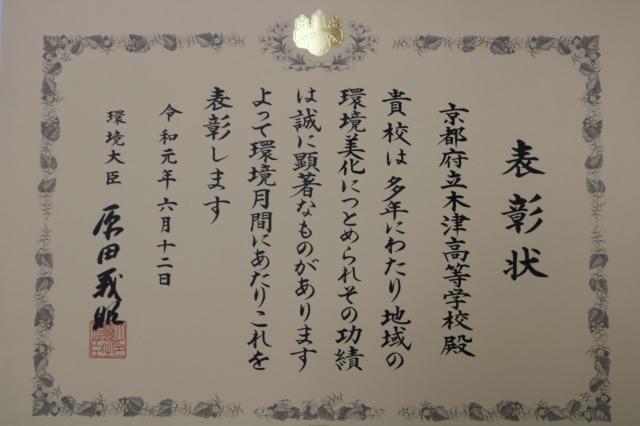 表彰状
京都府立木津高等学校殿
貴校は多年にわたり地域の
環境美化につとめられその功績
は誠に顕著なものがあります
よって環境月間にあたりこれを
表彰します
令和元年六月十二日
環境大臣 原田義昭